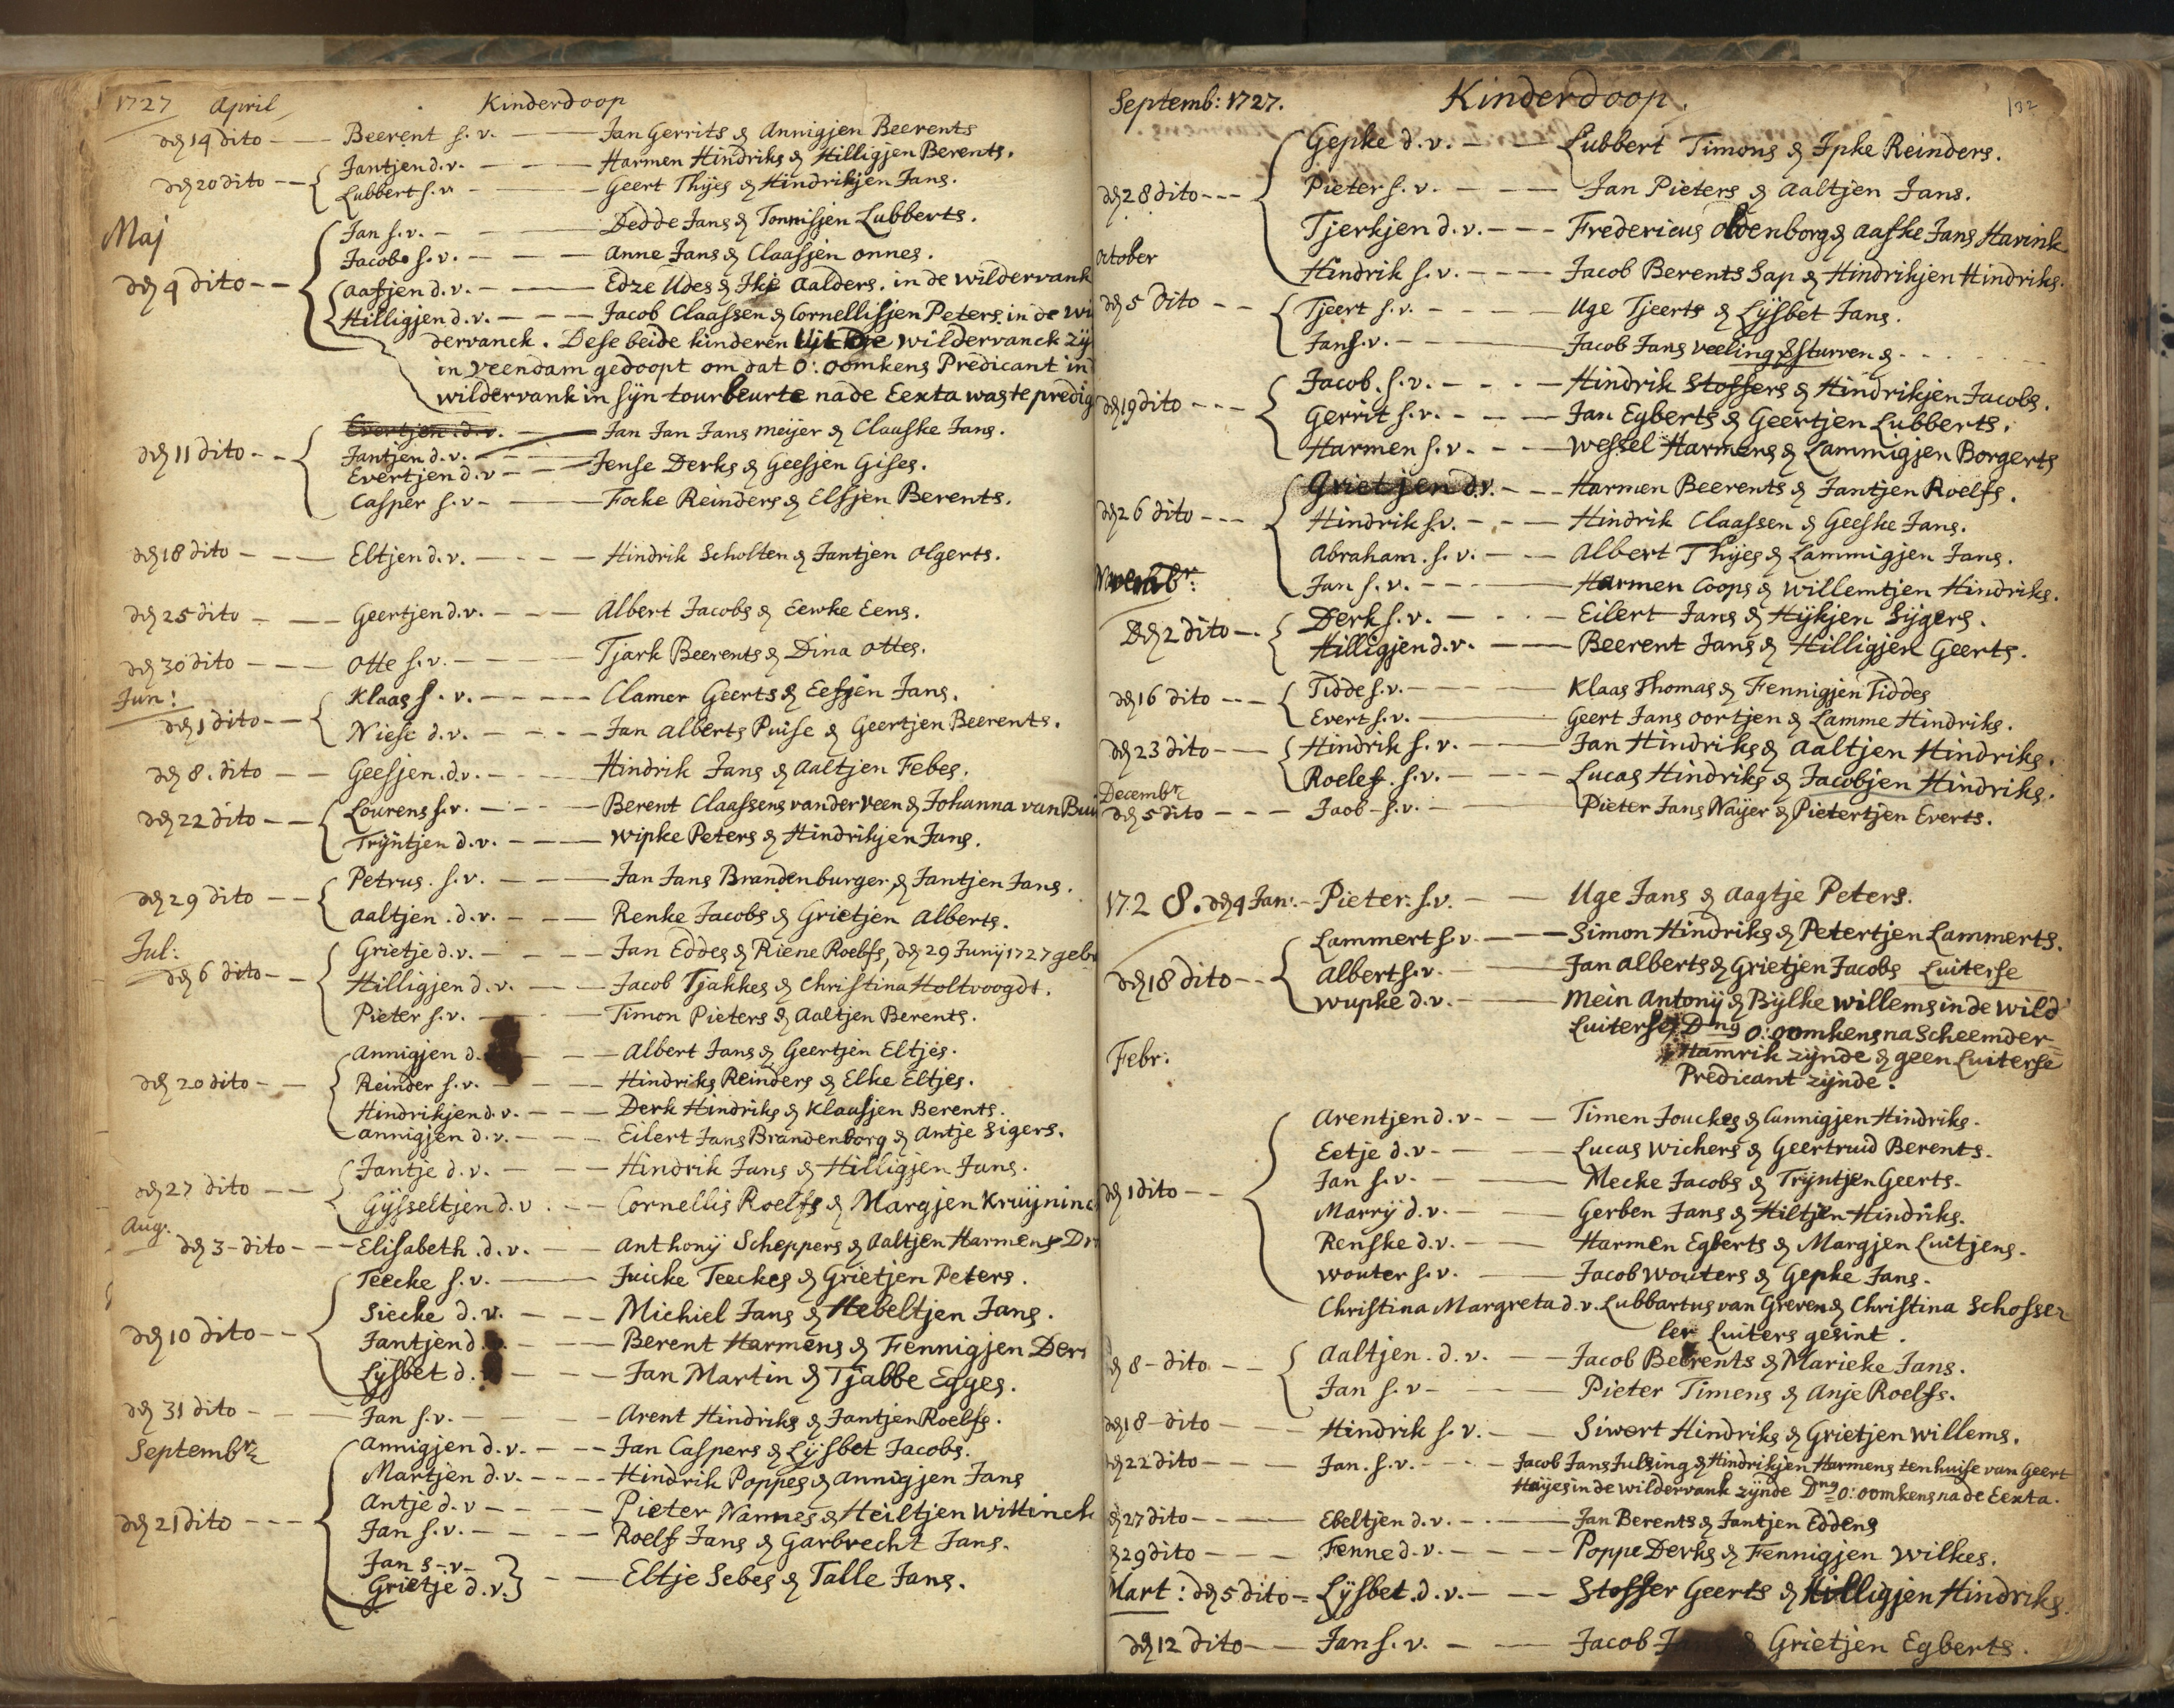 1727 April Kinderdoop
den 14 dito - - - Beerent s. v. - - - Jan Gerrits & Annigjen Beerents
Jantjen d. v. - - - Harmen Hindriks & Hilligjen Berents.
den 20 dito - - Lubbert s. v. - - - Geert Thijes & Hindrikjen Jans.
Maj
Jan s. v. - - - Dedde Jans & Tonnisjen Lubberts.
Jacob s. v. - - - Anne Jans & Claasjen onnes.
den 4 dito - - Aafjen d. v. - - - Edze Udes & Ikje Aalders. in de wildervank
Hilligjen d. v. - - - Jacob Claassen & Cornellisjen Peters. in de wi
dervanck. Dese beide kinderen Uit De wildervanck zÿ
in Veendam gedoopt om dat O: oomkens Predicant in
wildervank in sÿn tourbeurte na de Eexta was te predig
Evertjen d. v. - - - Jan Jan Jans meijer & Claaske Jans.
den 11 dito - - Jantjen d. v.
Evertjen d. v - - - Jense Derks & Geesjen Gises.
Casper s. v - - - Focke Reinders & Elsjen Berents.
den 18 dito - - - Eltjen d. v. - - - Hindrik Scholten & Jantjen Olgerts.
den 25 dito - - - Geertjen d. v. - - - Albert Jacobs & Eewke Eens.
den 30 dito - - - Otte s. v. - - - Tjark Beerents & Dina Ottes.
Jun:
Klaas s. v. - - - Clamer Geerts & Eefjen Jans.
den 1 dito - - Niese d. v. - - - Jan Alberts Puise & Geertjen Beerents.
den 8. dito - - Geesjen. d. v. - - - Hindrik Jans & Aaltjen Febes.
den 22 dito - - Lourens s. v. - - - Berent Claassens van der Veen & Johanna van Bui
Trÿntjen d. v. - - - Wipke Peters & Hindrikjen Jans.
Petrus. s. v. - - - Jan Jans Brandenburger, & Jantjen Jans.
den 29 dito - - Aaltjen. d. v. - - - Renke Jacobs & Grietjen Alberts.
Jul:
Grietje d. v. - - - Jan Eddes & Riene Roelfs, den 29 Junij 1727 geb
den 6 dito - - Hilligjen d. v. - - - Jacob Tjakkes & Christina Holtvoogdt.
Pieter s. v. - - - Timon Pieters & Aaltjen Berents.
Annigjen d. - - - Albert Jans & Geertjen Eltjes.
den 20 dito - - Reinder s. v. - - - Hindriks Reinders & Elke Eltjes.
Hindrikjen d. v. - - - Derk Hindriks & Klaasjen Berents.
Annigjen d. v. - - - Eilert Jans Brandenborg & Antje Sigers.
Jantje d. v. - - - Hindrik Jans & Hilligjen Jans.
den 27 dito - - Gÿsseltjen d. v. - - Cornellis Roelfs & Margjen Kruÿninc
Aug:
den 3 - dito - - - Elisabeth. d. v. - - Anthonij Scheppers & Aaltjen Harmens Dr
Teecke s. v. - - - Juicke Teeckes & Grietjen Peters.
Siecke d. v. - - - Michiel Jans & Hebeltjen Jans.
den 10 dito - - Jantjen d. - - - Berent Harmens & Fennigjen Der
Lÿsbet d. - - - Jan Martin & Tjabbe Egges.
den 31 dito - - - Jan s. v. - - - Arent Hindriks & Jantjen Roelfs.
Septembr
Annigjen d. v. - - - Jan Caspers & Lÿsbet Jacobs.
Martjen d. v. - - - Hindrik Poppes & Annigjen Jans
Antje d. v - - - Pieter Nannes & Heiltjen Wittinck
den 21 dito - - - Jan s. v. - - - Roelf Jans & Garbrecht Jans.
Jan s - v -
Grietje d. v. - - - Eltje Sebes & Talle Jans.
Septemb: 1727. Kinderdoop. 132
Gepke d. v. - - - Lubbert Timons & Ipke Reinders.
den 28 dito - - - Pieter s. v. - - - Jan Pieters & Aaltjen Jans.
Tjerkjen d. v. - - - Fredericus Oldenborg & Aafke Jans Havink
October
Hindrik s. v. - - - Jacob Berents Sap & Hindrikjen Hindriks.
den 5 dito - - Tjeert s. v. - - - Uge Tjeerts & Lÿsbet Jans.
Jan s. v. - - - Jacob Jans veeling & sturven & - - -
Jacob. s. v. - - - Hindrik Stoffers & Hindrikjen Jacobs.
den 19 dito - - - Gerrit s. v. - - - Jan Egberts & Geertjen Lubberts.
Harmen s. v - - - Wessel Harmens & Lammigjen Borgerts
Grietjen d. v. - - - Harmen Beerents & Jantjen Roelfs.
den 26 dito - - - Hindrik s. v. - - - Hindrik Claassen & Geeske Jans.
Abraham. s. v. - - Albert Thijes & Lammigjen Jans.
Novembr:
Jan s. v. - - - Harmen Coops & Willemtjen Hindriks.
Den 2 dito - Derk s. v. - - - Eilert Jans & Hÿkjen Sÿgers.
Hilligjen d. v. - - Beerent Jans & Hilligjen Geerts.
den 16 dito - - - Tidde s. v. - - - Klaas Thomas & Fennigjen Tiddes
Evert s. v. - - - Geert Jans oortjen & Lamme Hindriks.
den 23 dito - - Hindrik s. v. - - - Jan Hindriks & Aaltjen Hindriks.
Roelef. s. v. - - - Lucas Hindriks & Jacobjen Hindriks.
Decembr
den 5 dito - - - Jaob - s. v. - - - Pieter Jans Naijer & Pietertjen Everts.
1728. den 4 Jan: - Pieter. s. v. - - Uge Jans & Aagtje Peters.
Lammert s. v - - - Simon Hindriks & Petertjen Lammerts.
den 18 dito - - Albert s. v. - - - Jan Alberts & Grietjen Jacobs Luiterse
Wupke d. v. - - - Mein Antonij & Bÿlke Willems in de Wild
Luiterse, Dng O: oomkens na Scheemder=
Hamrik zÿnde & geen Luiterse
Predicant zÿnde.
Febr:
Arentjen d. v - - - Timen Jouckes & Annigjen Hindriks.
Eetje d. v - - - Lucas Wichers & Geertruid Berents.
Jan s. v. - - - Mecke Jacobs & Trÿntjen Geerts.
den 1 dito - - Marrÿ d. v. - - - Gerben Jans & Hiltjen Hindriks.
Renske d. v. - - - Harmen Egberts & Margjen Luitjens.
Wouter s. v. - - - Jacob Wouters & Gepke Jans.
Christina Margreta d. v. Lubbartus van Greven & Christina Schosser
ler Luiters gesint.
den 8 - dito - - Aaltjen. d. v. - - Jacob Beerents & Marieke Jans.
Jan s. v - - - Pieter Timens & Anje Roelfs.
den 18 - dito - - - Hindrik s. v. - - Siwert Hindriks & Grietjen Willems.
den 22 dito - - - Jan. s. v. - - - Jacob Jans Julsing & Hindrikjen Harmens ten huise van Geert
Haijes in de wildervank zÿnde Dng O: oomkens na de Eexta.
27 dito - - - Ebeltjen d. v. - - - Jan Berents & Jantjen Eddens
29 dito - - - Fenne d. v. - - - Poppe Derks & Fennigjen Wilkes.
Mart: den 5 dito - Lÿsbet. d. v. - - - Stoffer Geerts & Hilligjen Hindriks.
den 12 dito - - Jan s. v. - - - Jacob & Grietjen Egberts.